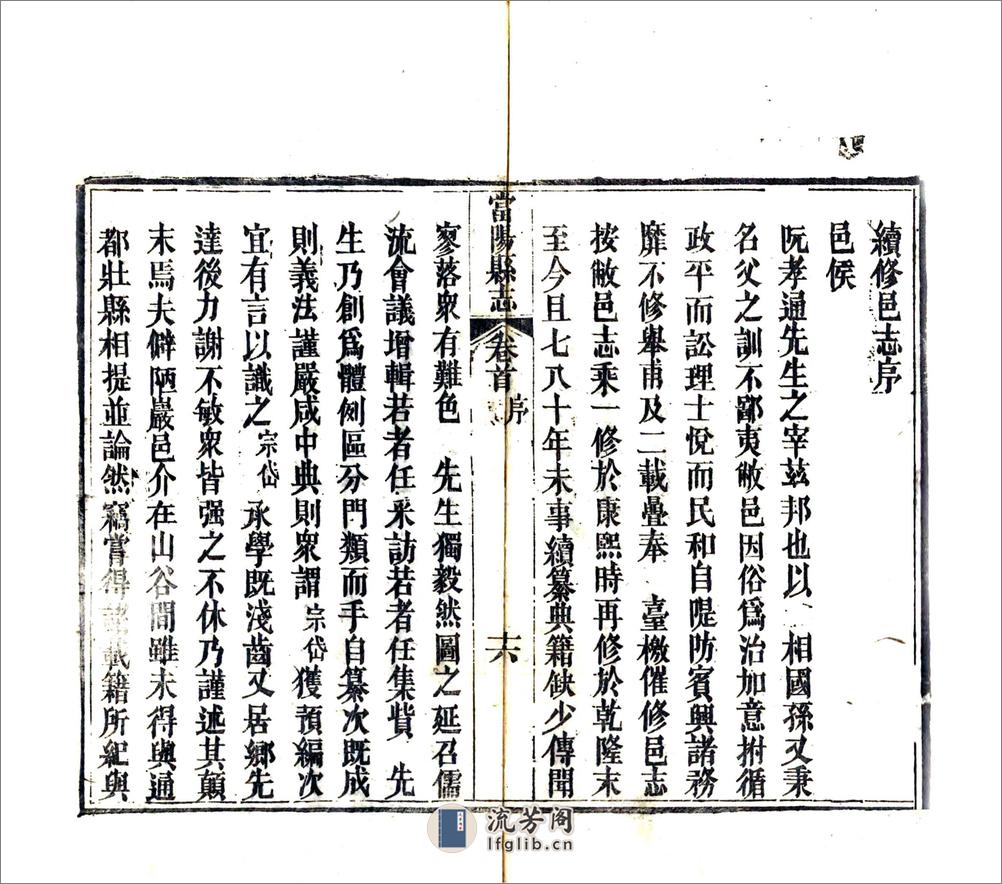 續修邑志序
邑侯
阮孝通先生之宰茲邦也以 相國孫又秉
名父之訓不鄙夷敝邑因俗爲治加意拊循
政平而訟理士悅而民和自隄防賓興諸務
靡不修舉甫及二載疊奉 臺檄催修邑志
按敝邑志乘一修於康熙時再修於乾隆末
至今且七八十年未事續纂典籍缺少傳聞
當陽縣志
卷首
序
十六
寥落衆有難色 先生獨毅然圖之延召儒
流會議增輯若者任采訪若者任集貲 先
生乃創爲體例區分門類而手自纂次既成
則義法謹嚴咸中典則衆謂宗岱獲預編次
宜有言以識之宗岱承學既淺齒又居鄉先
達後力謝不敏衆皆强之不休乃謹述其顛
末焉夫僻陋巖邑介在山谷間雖未得與通
都壯縣相提並論然竊嘗得諸載籍所紀與
流芳阁
lfglib.cn